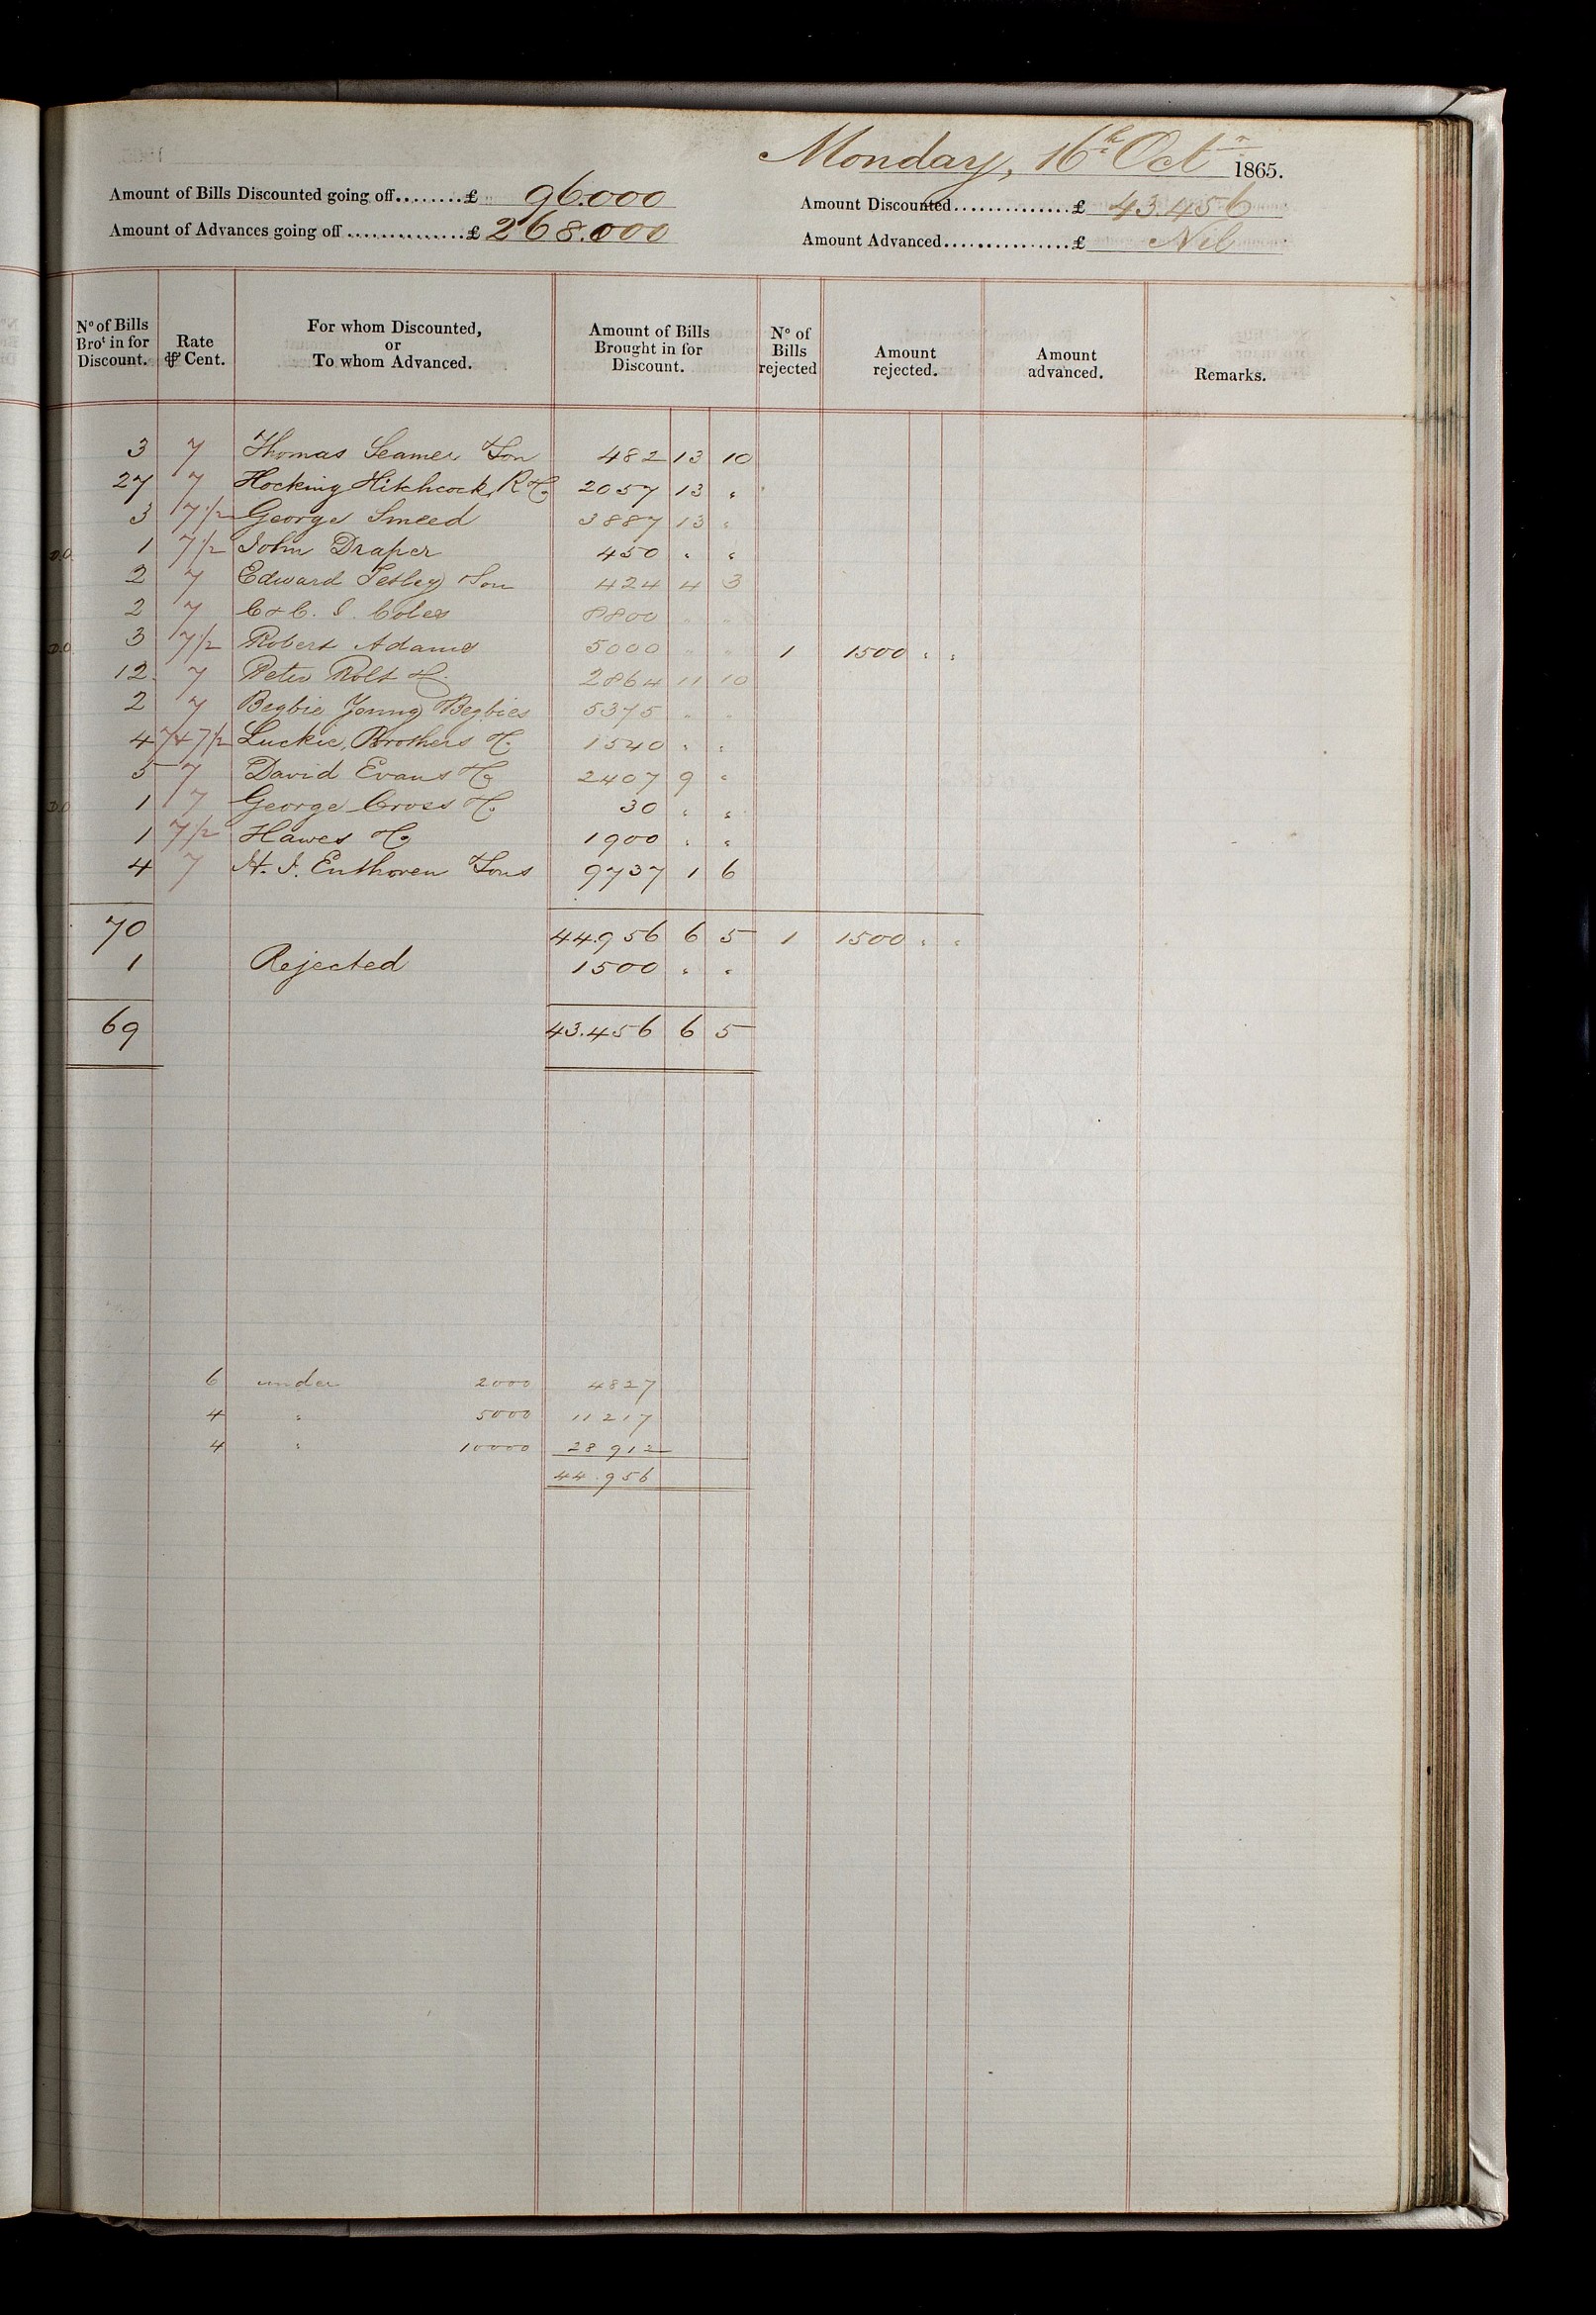 Monday, 16th Octr 1865.
Amount of Bills Discounted going off........£ 96.000
Amount Discounted..............£ 43.456
Amount of Advances going off..............£ 268.000
Amount Advanced...............£ Nil
No of Bills Brot in for Discount. Rate ⅌ Cent. For whom Discounted, or To whom Advanced. Amount of Bills Brought in for Discount. No of Bills rejected Amount rejected. Amount advanced. Remarks.
3 7 Thomas Seamer & Son 482 13 10
27 7 Hocking Hitchcock, R & Co 2057 13 "
3 7 1/2 George Smeed 3887 13 "
D.O. 1 7 1/2 John Draper 450 " "
2 7 Edward Son 424 4 3
2 7 C & C. J. Coles 8800 " "
D.O. 3 7 1/2 Robert Adams 5000 " " 1 1500 " "
12 7 Peter Rolt & Co. 2864 11 10
2 7 Begbie Young & Begbies 5375 " "
4 7 & 7 1/2 Luckie, Brothers & Co. 1540 " "
5 7 David Evans & Co 2407 9 "
D.O. 1 7 George Cross & Co. 30 " "
1 7 1/2 Hawes & Co 1900 " "
4 7 H. J. Enthoven & Sons 9737 1 6
70 44.956 6 5 1 1500 " "
1 Rejected 1500 " "
69 43.456 6 5
6 under 2000 4827
4 " 5000 11217
4 " 10000 28912
44.956